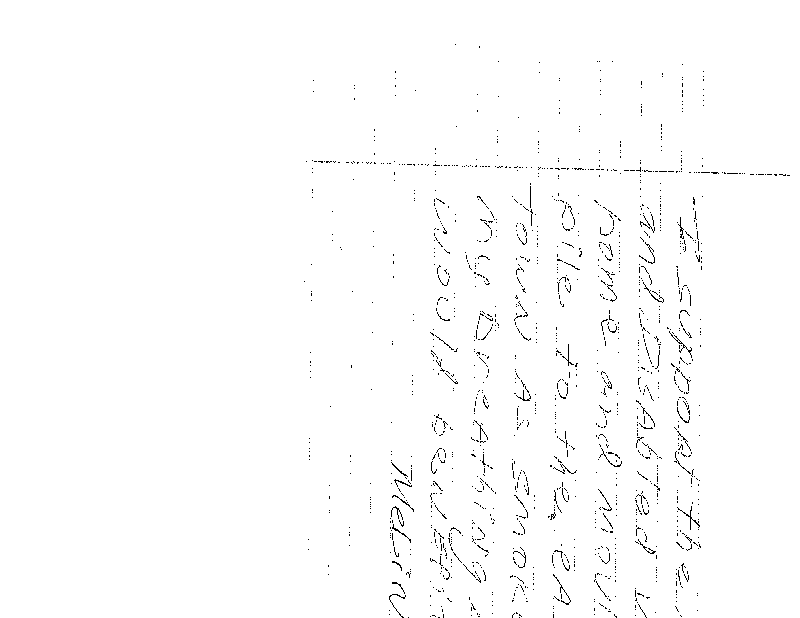 I support the
and DisAbled
home and
pile to the eA
town As smoke
my breathing
would benefi